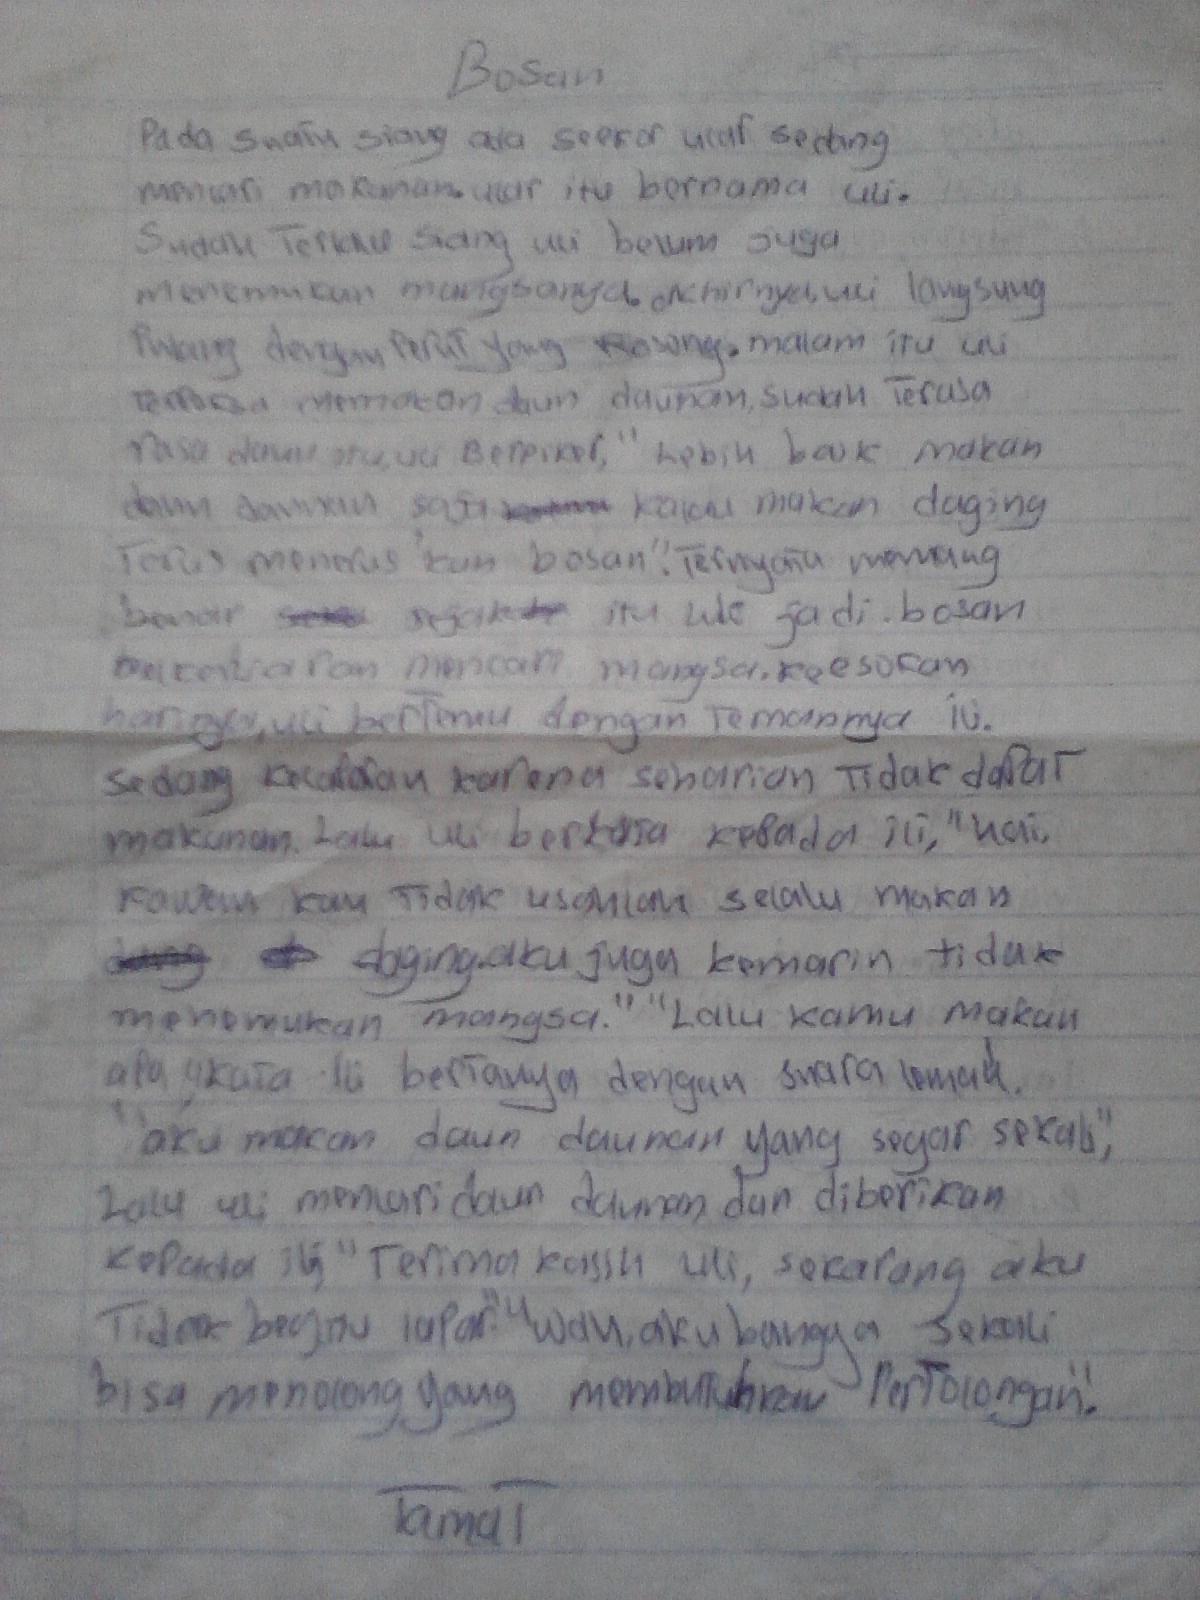 Bosan
Pada suatu siang ada seekor ular sedang
mencari makanan. ular itu bernama uli.
Sudah Terlalu siang uli belum juga
menemukan mangsanya. akhirnya, uli langsung
Pulang dengan Perut yang Kosong. malam itu uli
Terpaksa memakan daun daunan, sudah Terasa
rasa daun itu, uli Berpikir, "Lebih baik makan
daun daunan saja kalau makan daging
Terus menerus kan bosan". Ternyata memang
benar sejak itu uli jadi. bosan
berkeliaran mencari mangsa. keesokan
harinya, uli bertemu dengan Temannya ili.
sedang kelaparan karena seharian Tidak dapat
makanan. Lalu uli berkata kepada ili, "hai,
kawan kau Tidak usahlah selalu makan
daging. aku juga kemarin tidak
menemukan mangsa." "Lalu kamu makan
apa, "kata ili bertanya dengan suara lemah.
"aku makan daun daunan yang segar sekali",
Lalu uli mencari daun daunan dan diberikan
kepada ili, "Terima kasih uli, sekarang aku
Tidak begitu lapar." "wah, aku bangga sekali
bisa menolong yang membutuhkan Pertolongan".
TamaT